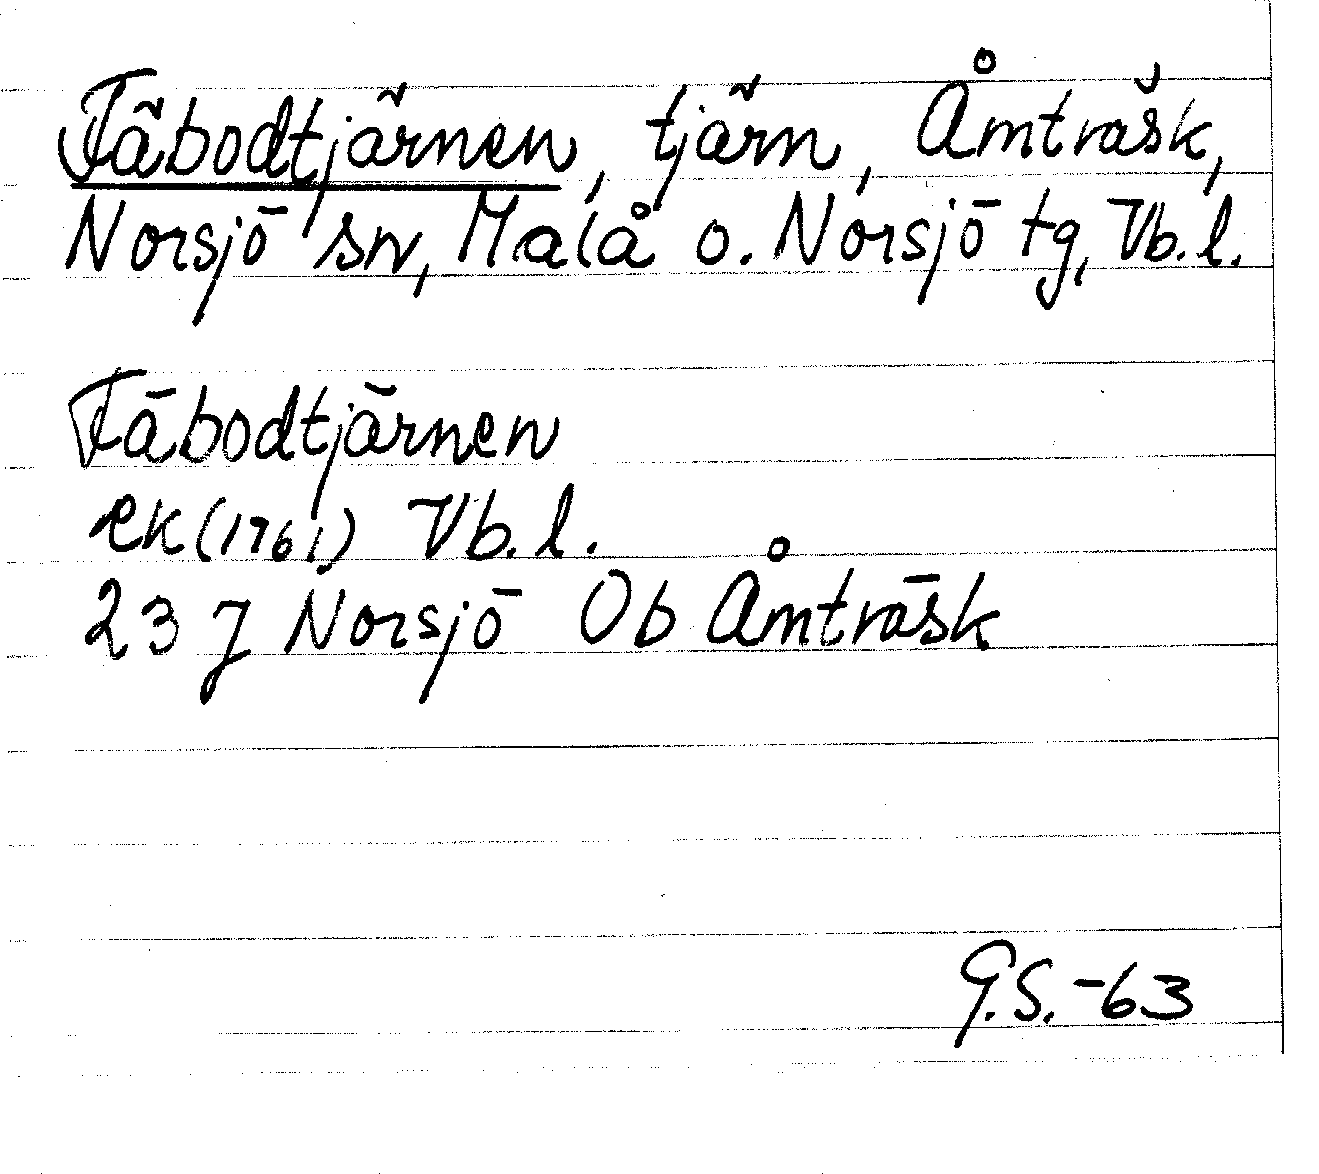 Fäbodtjärnen, tjärn, Åmträsk,
Norsjö sn, Malå o. Norsjö tg, Vb. l.
Fäbodtjärnen
ek (1961) Vb. l.
23 J Norsjö Ob Åmträsk
G.S. -63